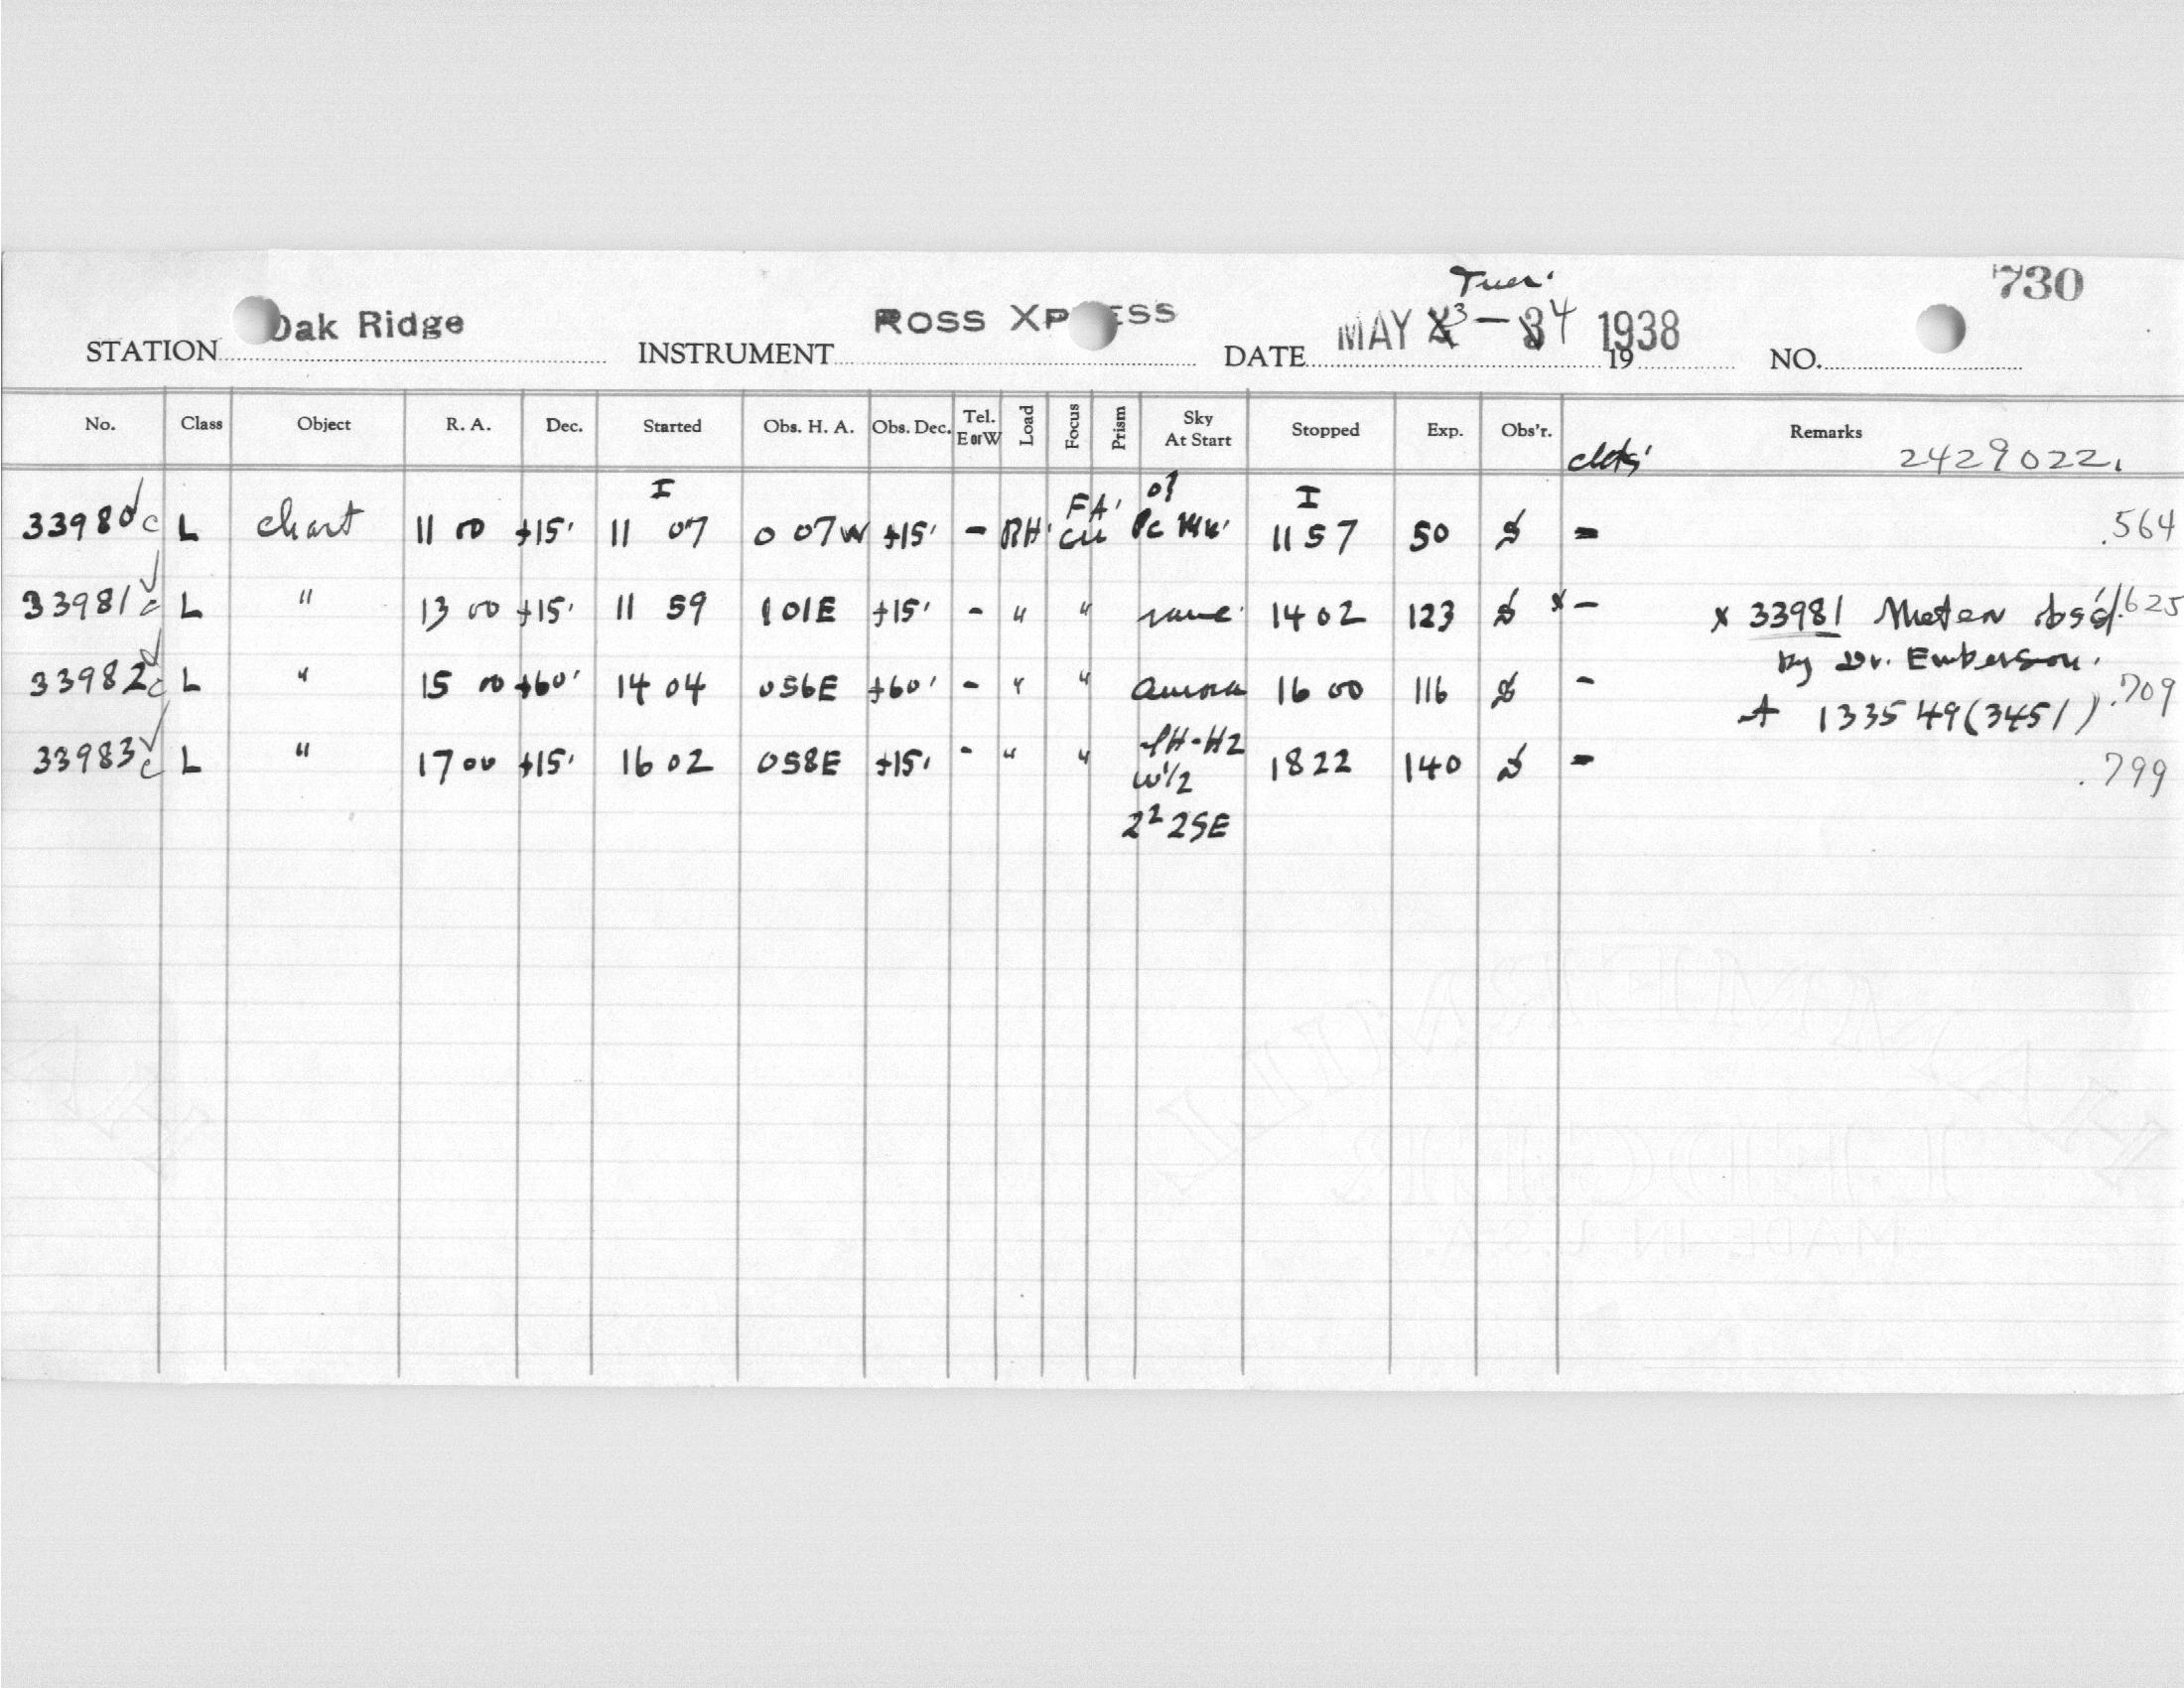 730
Tues.
STATION Oak Ridge INSTRUMENT ROSS XPRESS DATE MAY 3 - 4 1938 19 NO.
No. Class Object R. A. Dec. Started Obs. H. A. Obs. Dec. Tel. E or W Load Focus Prism Sky At Start Stopped Exp. Obs'r. Remarks
2429022.
I I
33980 c L chart 11 00 +15° 11 07 0 07W +15° - RH FA 11 57 50 - .564
33981 c L " 13 00 +15° 11 59 1 01E +15° - " " same 14 02 123 x - x 33981 Meteor obs'd .625
by Dr. Emberson.
33982 c L " 15 00 +60° 14 04 0 56E +60° - " " Aurora 16 00 116 - .709
At 13 35 49 (3451)
33983 c L " 17 00 +15° 16 02 0 58E +15° - " " 18 22 140 - .799
W 1/2
2² 2SE
LEDGER
MADE IN U.S.A.